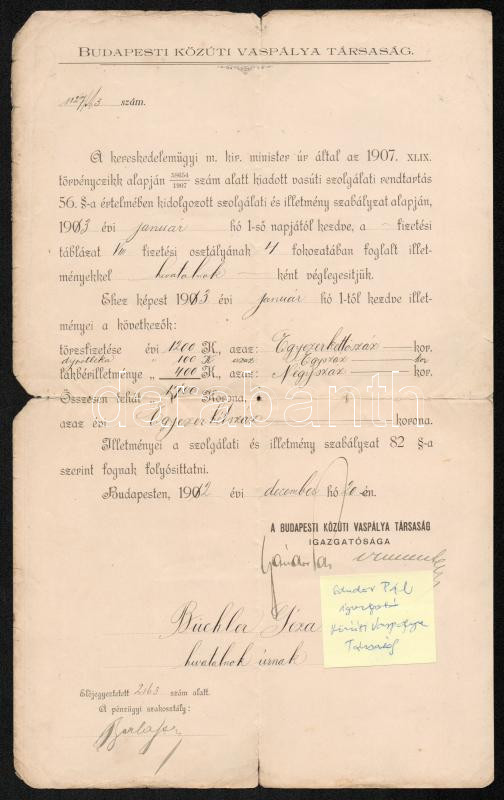 BUDAPESTI KÖZÚTI VASPÁLYA TÁRSASÁG.
szám.
A kereskedelemügyi m. kir. minister úr által az 1907. XLIX.
törvényczikk alapján 58654/1907 szám alatt kiadott vasúti szolgálati rendtartás
56. §-a értelmében kidolgozott szolgálati és illetmény szabályzat alapján,
1913 évi január hó 1-ső napjától kezdve, a — fizetési
táblázat VIII fizetési osztályának 4 fokozatában foglalt illet-
ményekkel hivatalnok — ként véglegesítjük.
Ehez képest 1913 évi január hó 1-től kezdve illet-
ményei a következők:
törzsfizetése évi 1200 K, azaz: Egyezerkettőszáz — kor.
" 100 K azaz Egyszáz kor
lakbérilletménye " 400 K, azaz: Négyszáz — kor.
Összesen tehát Korona,
azaz évi korona.
Illetményei a szolgálati és illetmény szabályzat 82 §-a
szerint fognak folyósittatni.
Budapesten, 1912 évi december hó 20-én.
A BUDAPESTI KÖZÚTI VASPÁLYA TÁRSASÁG
IGAZGATÓSÁGA
Sándor Pál
igazgató
Közúti Vaspálya
Társaság
Büchler Géza
hivatalnok úrnak
Előjegyeztetett 2163 szám alatt.
A pénzügyi szakosztály:
darabanth